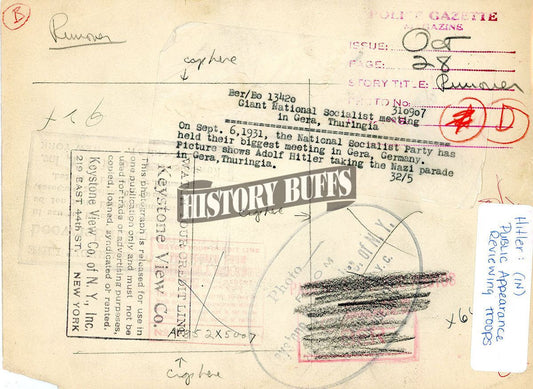 B
Runover
crop here
POLICE GAZETTE
MAGAZINE
ISSUE: Oct
PAGE: 28
STORY TITLE: Runover
PHOTO No:
D
Ber/Bo 13420
310907
Giant National Socialist meeting
in Gera, Thuringia
On Sept. 6,1931, the National Socialist Party has
held their biggest meeting in Gera, Germany.
Picture shows Adolf Hitler taking the Nazi parade
in Gera,Thuringia.
32/5
HISTORY BUFFS
CREDIT LINE
Keystone View Co.
This photograph is released for use in
one publication only and must not be
used for trade or advertising purposes,
copied, loaned, syndicated or rented.
Keystone View Co. of N. Y., Inc.
219 EAST 44th ST. NEW YORK
Photo
FROM
of N. Y.
A 852X5007
crop here
Hitler: (IN)
Public Appearance
Reviewing Troops